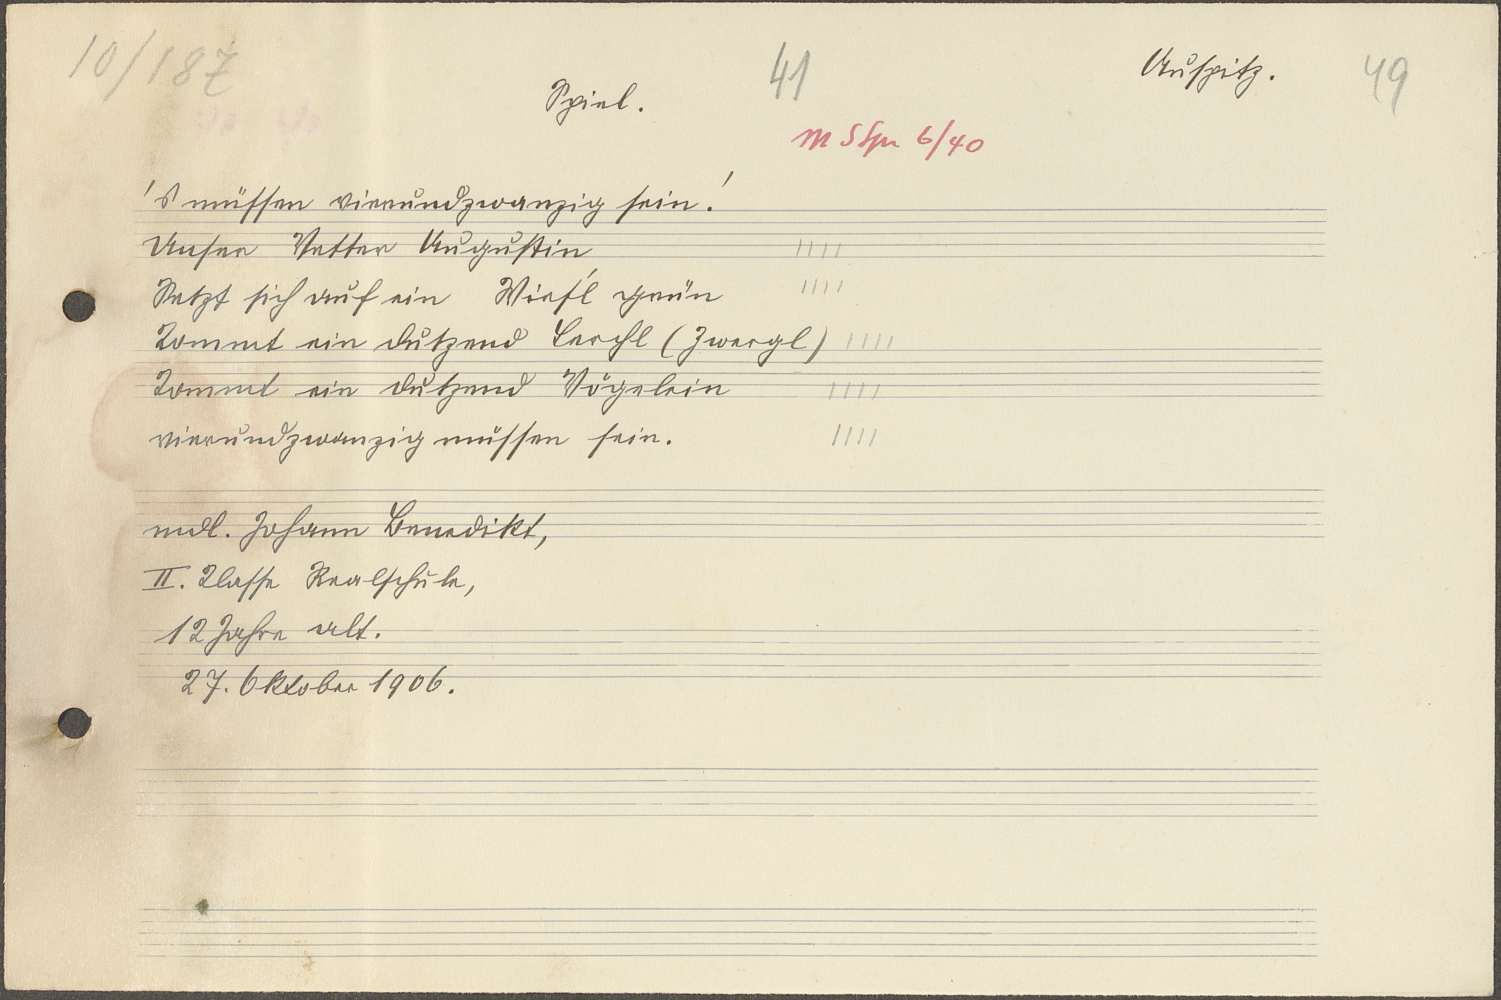 10/187
41
Auspitz.
49
Spiel.
M S Spr 6/40
's müssen vierundzwanzig sein!
Unser Vetter Augustin
Setzt sich auf ein Wies'l grün
Kommt ein dutzend Lerchl (Zwergl)
Kommt ein dutzend Vögelein
vierundzwanzig müssen sein.
mdl. Johann Benedikt,
II. Klasse Realschule,
12 Jahre alt.
27. Oktober 1906.